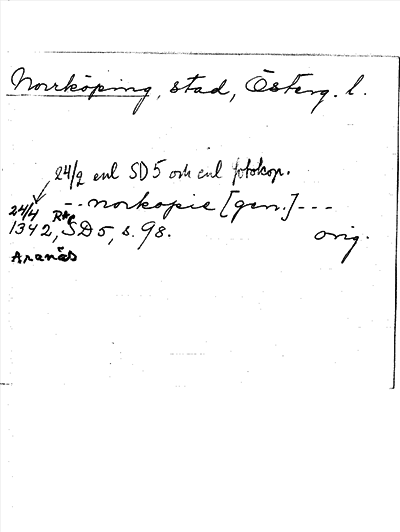 Norrköping, stad, Österg. l.
24/2 enl SD5 och enl fotokop.
-- norkopie [gen.] ---
24/4
1342, SD5, s. 98. orig.
Aranäs